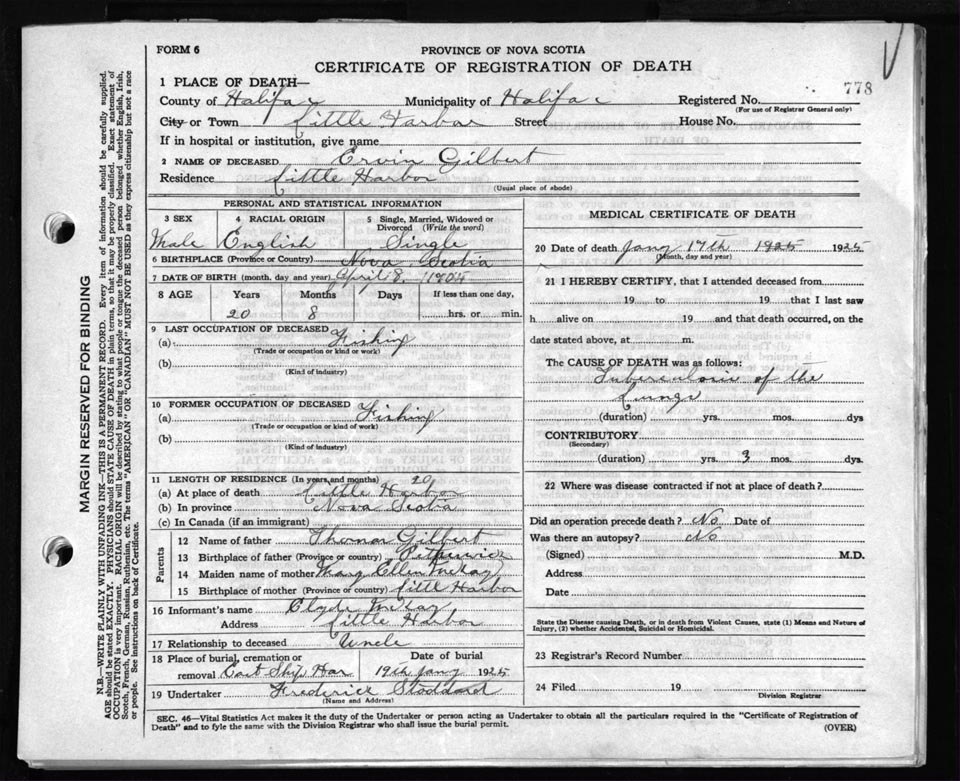 FORM 6
PROVINCE OF NOVA SCOTIA
CERTIFICATE OF REGISTRATION OF DEATH
778
1 PLACE OF DEATH—
County of Halifax Municipality of Halifax Registered No.
(For use of Registrar General only)
City or Town Little Harbor Street House No.
If in hospital or institution, give name
2 NAME OF DECEASED Ervin Gilbert
Residence Little Harbor
(Usual place of abode)
PERSONAL AND STATISTICAL INFORMATION
3 SEX 4 RACIAL ORIGIN 5 Single, Married, Widowed or
Divorced (Write the word)
Male English Single
6 BIRTHPLACE (Province or Country) Nova Scotia
7 DATE OF BIRTH (month, day and year) April 8, 1904
8 AGE Years Months Days If less than one day,
20 8 hrs. or min.
9 LAST OCCUPATION OF DECEASED
(a) Fishing
(Trade or occupation or kind or work)
(b)
(Kind of industry)
10 FORMER OCCUPATION OF DECEASED
(a) Fishing
(Trade or occupation or kind of work)
(b)
(Kind of industry)
11 LENGTH OF RESIDENCE (In years and months) 20
(a) At place of death Little Harbor
(b) In province Nova Scotia
(c) In Canada (if an immigrant)
Parents
12 Name of father Thomas Gilbert
13 Birthplace of father (Province or country)
14 Maiden name of mother Mary Ellen McKay
15 Birthplace of mother (Province or country) Littl Harbor
16 Informant's name Clyde McKay
Address Little Harbor
17 Relationship to deceased Uncle
18 Place of burial, cremation or Date of burial
removal East Ship Har 19th Jany 1925
19 Undertaker Frederick Stoddard
(Name and Address)
MEDICAL CERTIFICATE OF DEATH
20 Date of death Jany 17th 1925 1925
(Month, day and year)
21 I HEREBY CERTIFY, that I attended deceased from
19 to 19 that I last saw
h alive on 19 and that death occurred, on the
date stated above, at m.
The CAUSE OF DEATH was as follows:
Tuberculosis of the
Lungs
(duration) yrs. mos. dys
CONTRIBUTORY
(Secondary)
(duration) yrs. 3 mos. dys.
22 Where was disease contracted if not at place of death?
Did an operation precede death? No Date of
Was there an autopsy? No
(Signed) M.D.
Address
Date
State the Disease causing Death, or in death from Violent Causes, state (1) Means and Nature of
Injury, (2) whether Accidental, Suicidal or Homicidal.
23 Registrar's Record Number
24 Filed 19
Division Registrar
SEC. 46—Vital Statistics Act makes it the duty of the Undertaker or person acting as Undertaker to obtain all the particulars required in the "Certificate of Registration of
Death" and to fyle the same with the Division Registrar who shall issue the burial permit.
(OVER)
MARGIN RESERVED FOR BINDING
N.B.—WRITE PLAINLY WITH UNFADING INK—THIS IS A PERMANENT RECORD. Every item of information should be carefully supplied.
AGE should be stated EXACTLY. PHYSICIANS should STATE CAUSE OF DEATH in plain terms, so that it may be properly classified. Exact statement of
OCCUPATION is very important. RACIAL ORIGIN will be described by stating to what people or tongue the deceased person belonged whether English, Irish,
Scotch, French, German, Russian, Ruthenian, etc. The terms "AMERICAN" OR "CANADIAN" MUST NOT BE USED as they express citizenship but not a race
or people. See instructions on back of Certificate.